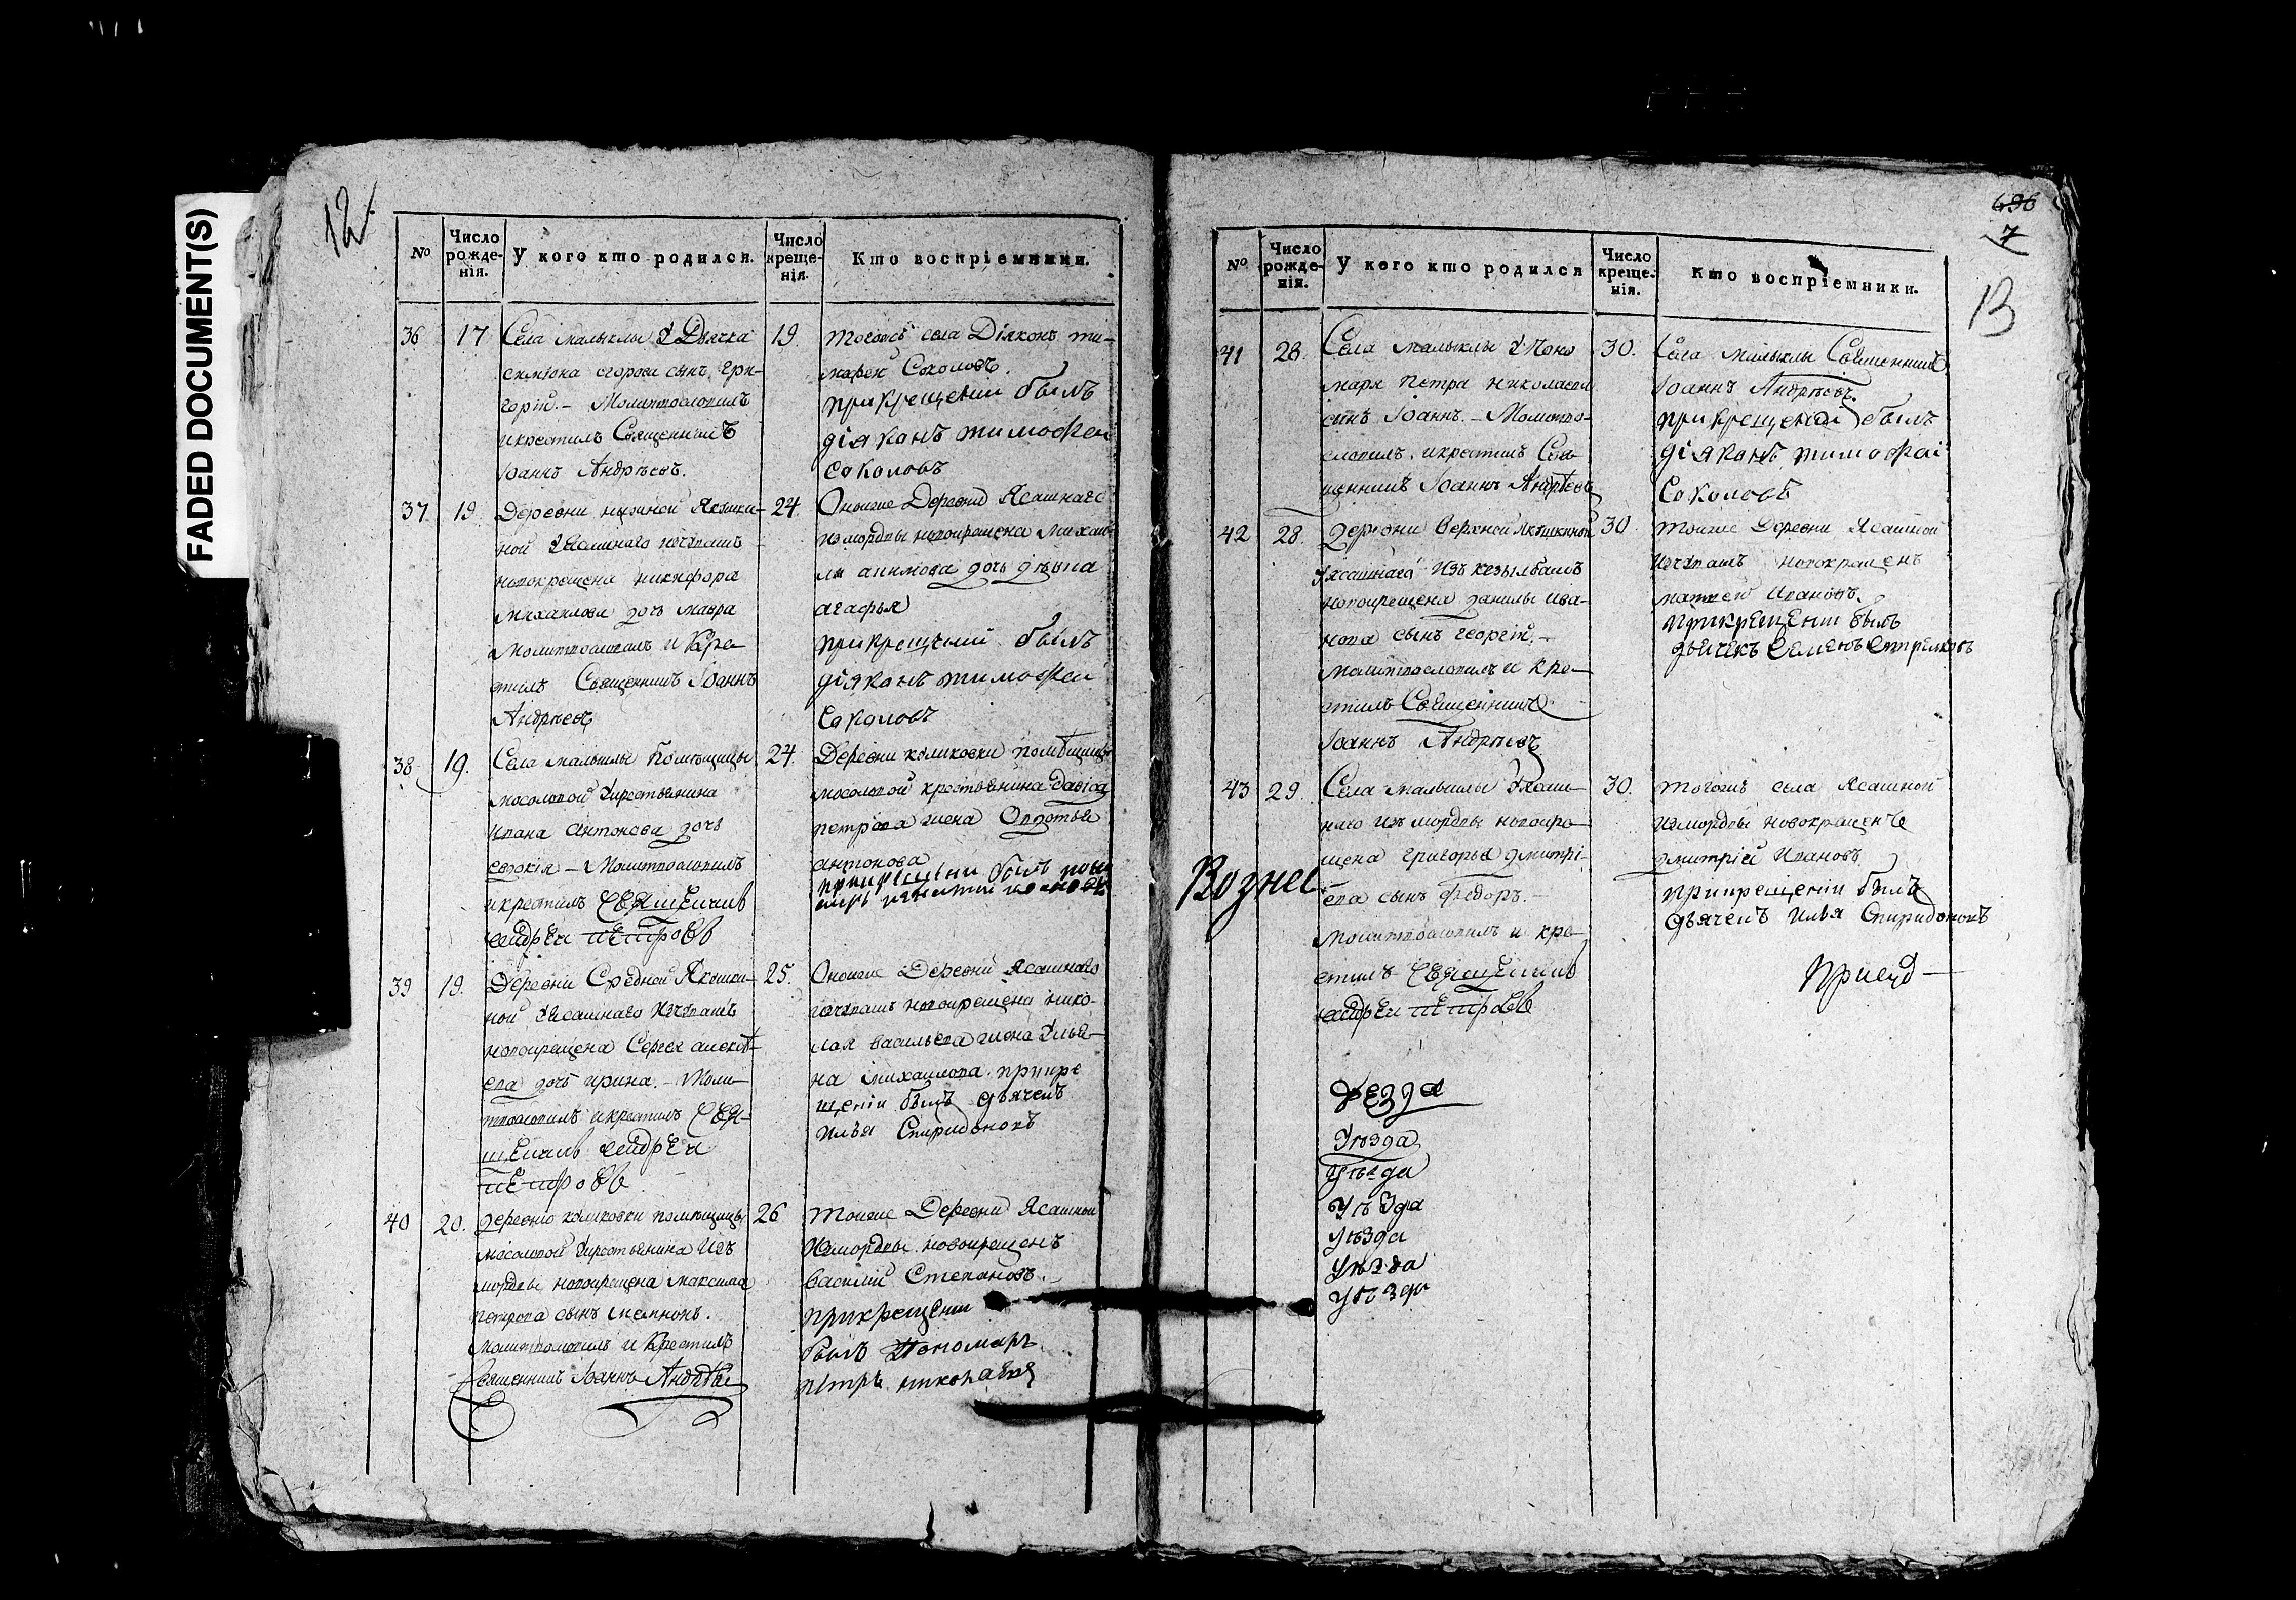 FADED DOCUMENT(S)
12
№
Число рожде-нія.
У кого кто родился.
Число креще-нія.
Кто воспріемники.
36
17
Села малыклы У Дьячка
симіона егорова сынъ гри-
горій. – Молитвословилъ
и крестилъ Священникъ
Іоаннъ Андрѣевъ.
19.
тогожъ села Діяконъ ти-
мофей Соколовъ.
при крещеніи былъ
діяканъ тимофеи
Соколовъ
37
19.
Деревни нижней Якушки-
ной У Ясашнаго изчувашъ
новокрещена никифора
михаилова дочь мавра
Молитвословилъ и Кре-
стилъ Священникъ Іоаннъ
Андрѣевъ
24.
Оноиже Деревни Ясашнаго
измордвы новокрещена михаи-
ла акимова дочь дѣвка
агафья
при крещеніи былъ
діяканъ тимофеи
Соколовъ
38
19.
Села малыклы Помѣщицы
мосоловой У крестьянина
ивана антонова дочь
евдокія – Молитвословилъ
и крестилъ Священикъ
андреи петровъ
24.
Деревни коликовки помѣщицы
мосоловой крестьянина Давида
петрова жена Овдотья
антонова
при крещени былъ
39
19.
Деревни Средней Якушки-
ной У Ясашнаго Изчувашъ
новокрещена Сергея алексѣ-
ева дочь ирина. – Моли-
твословилъ и крестилъ Свя-
щеникъ андреи
петровъ
25.
Оноиже Деревни Ясашнаго
изчувашъ новокрещена нико-
лая васильева жена Улья-
на михаилова. при кре
щеніи былъ дьячекъ
Илья Спиридоновъ
40
20.
деревни коликовки помѣщицы
мосоловой У крестьянина Изъ
мордвы новокрещена максима
петрова сынъ мемнонъ.
Молитвословилъ и Крестилъ
Священникъ Іоаннъ Андрѣевъ
26
тоиже Деревни Ясашной
Измордвы новокрещенъ
василій Степановъ.
при крещени
былъ Пономаръ
петръ николаевъ
696
7
13
№
Число рожде-нія.
У кого кто родился
Число креще-нія.
Кто воспріемники.
41
28.
Села малыклы У Поно
маря петра николаева
сынъ Іоаннъ. – Молитво-
словилъ. и крестилъ Свя
щенникъ Іоаннъ Андрѣевъ
30.
Села малыклы Священникъ
Іоаннъ Андрѣевъ.
при крещеніи былъ
діяканъ тимофеи
Соколовъ
42
28.
деревни верхней Якушкиной
У ясашнаго Изъ кезылбашъ
новокрещена данилы ива-
нова сынъ георгій. –
молитвословилъ и кре-
стилъ Священникъ
Іоаннъ Андрѣевъ
30
тоиже Деревни Ясашной
изчувашъ новокрещенъ
матвей Ивановъ.
при крещении былъ
дьячекъ Семенъ Стрелковъ
43
29.
Села малыклы У Ясаш-
наго изъ мордвы новокре-
щена григорья дмитрі-
ева сынъ федоръ. –
молитвословилъ и кре-
стилъ Священикъ
андреи петровъ
30.
тогожъ села Ясашной
измордвы новокрещенъ
дмитрій Ивановъ.
при крещеніи былъ
дьячекъ Илья Спиридоновъ
Вознес
Уѣзда
Уѣзда
Уѣзда
Уѣзда
Уѣзда
Уѣзда